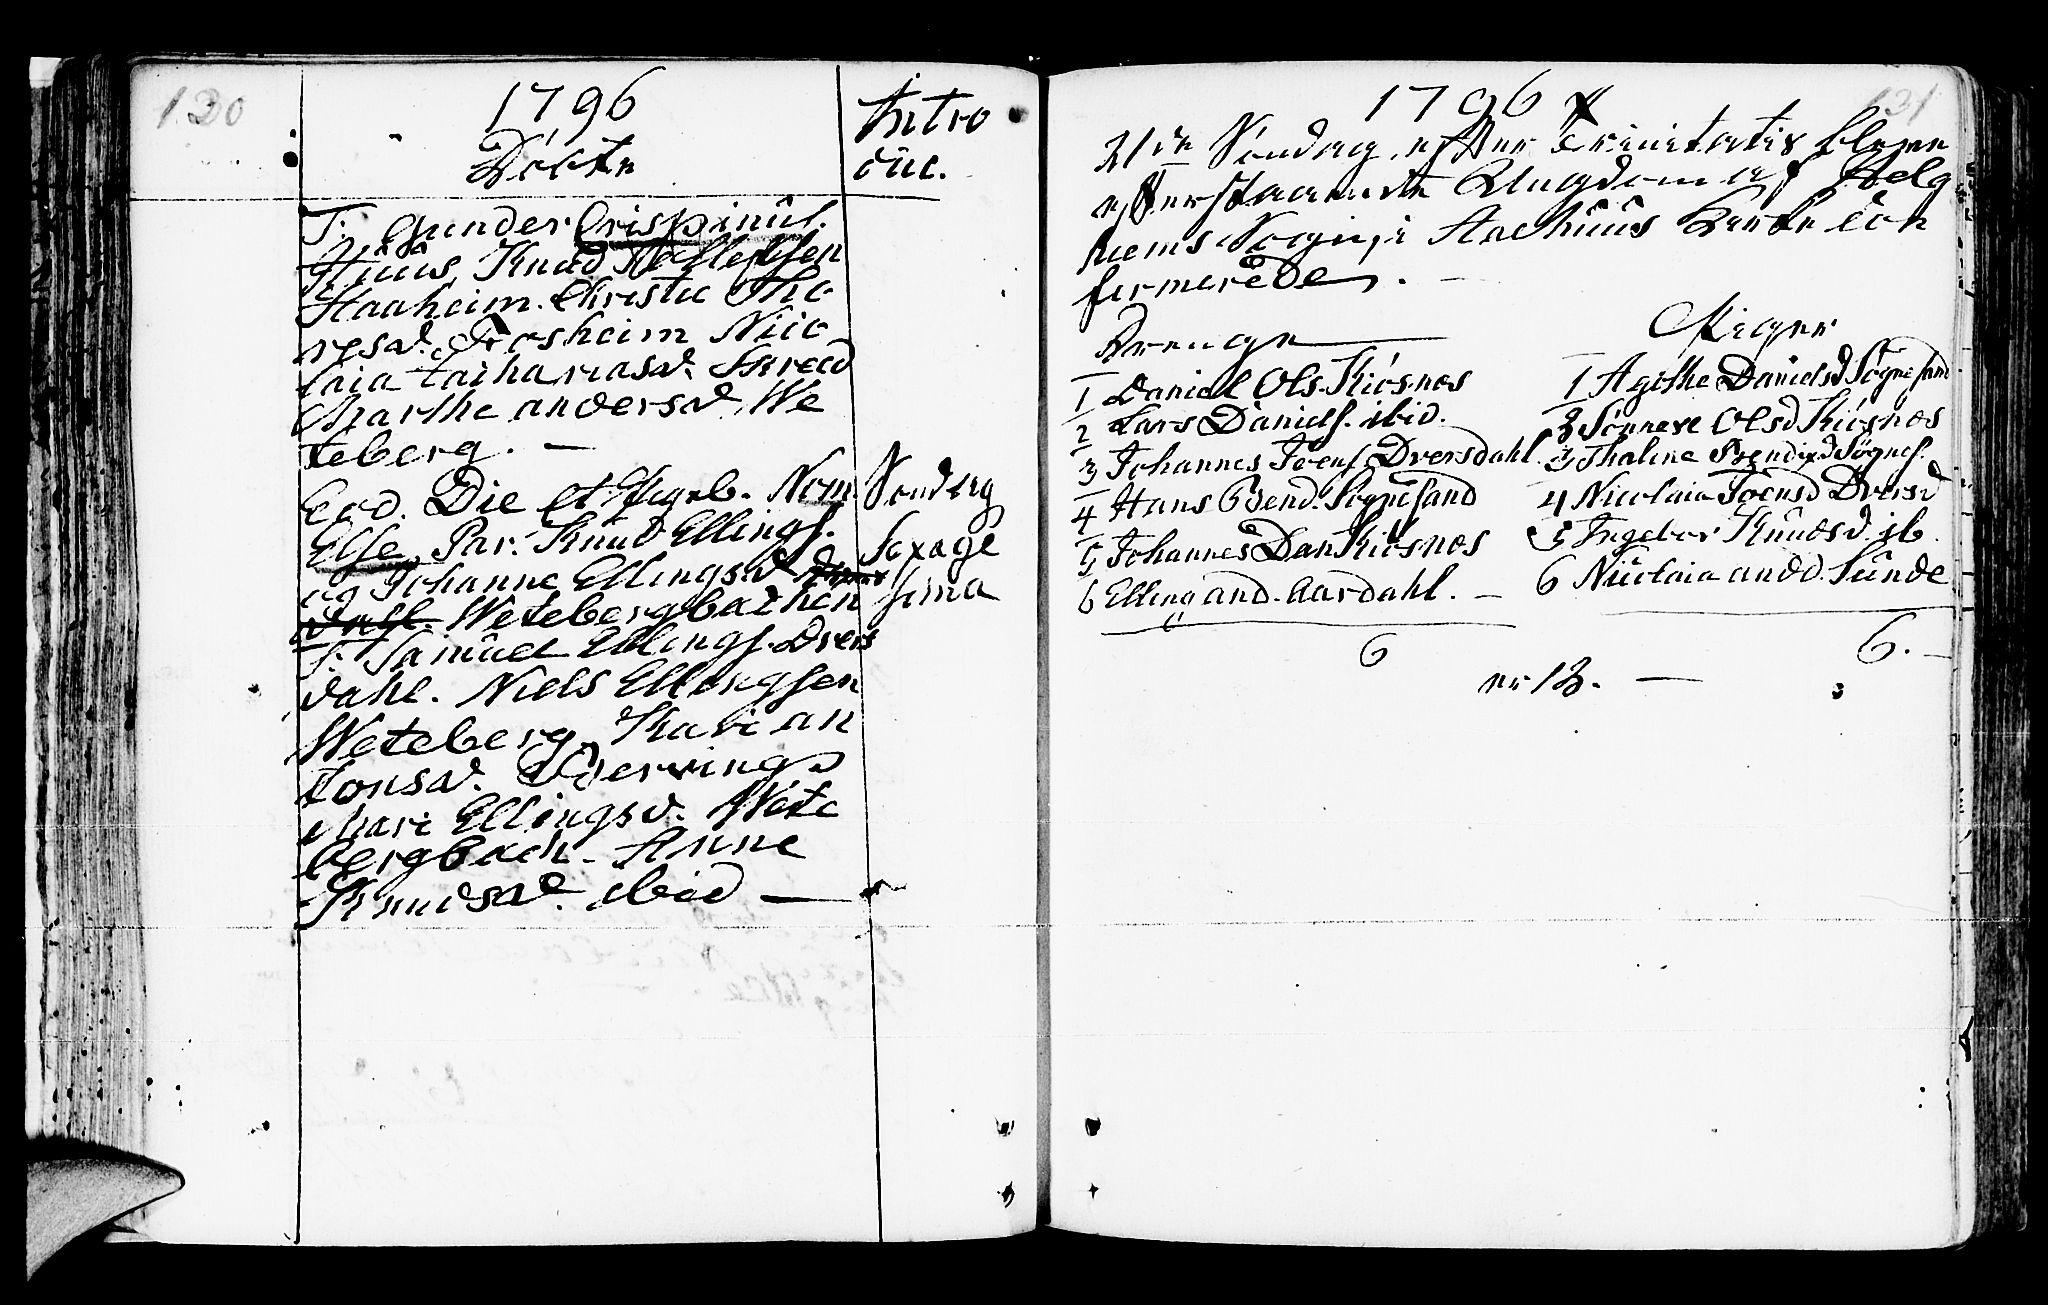 130
1796
Döbte
Intro
duc.
T: Gunder Crispinûs.
Hûûs, Knud Hellessen
Haaheim. Christie Tho
resd. Frosheim Nico
laia Zachariasd. Skreed
Marthe andersd. We
teberg. —
Eod. Die et Ejusd. Nom.
Else Par. Knud Ellings.
og Johanne Ellingsd. Dvers
dahl. Wetebergbachen
T: Samuel Ellings. Dvers
dahl. Niels Ellingsen
Weteberg. Kari an
tonsd.
Mari Ellingsd. Wete
bergbach. Anne
Knudsd. ibid —
Söndag
Sexage
sima
1796
131
21de Söndag efter Trinitatis bleve
efterstaaende Ungdom af Helg
hems Sogn, i Aalhûûs Kirke Con
firmerede. —
Drenge
1 Daniel Ols. Kiösnos
2 Lars Daniels. ibid.
3 Johannes Joens. Dversdahl.
4 Hans Bend. Sognesand
5 Johannes Dan. Kiösnos
6 Elling and. Aardahl. —
6
Piger
1 Agethe Danielsd Sögnesand
2 Sönneve Olsd Kiösnos
3 Thaline Bendixd Sögnes.
4 Nicolaia Joensd Dversd
5 Ingebor Knûdsd. ib.
6 Nicolaia andd. Sunde
6. —
er 12. —